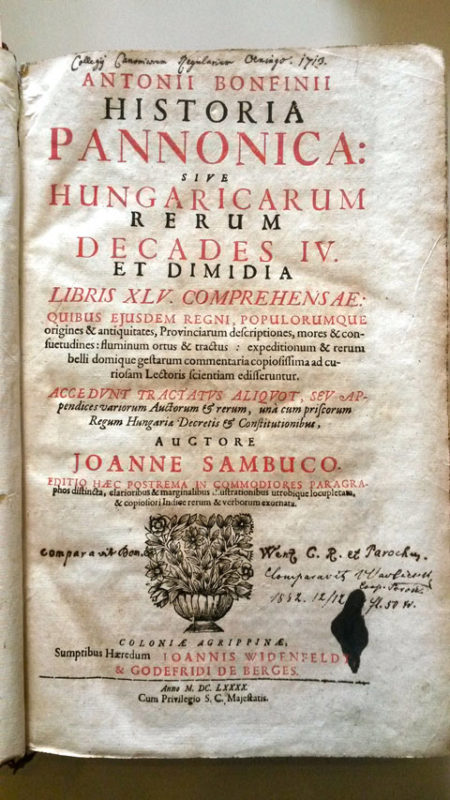 Collegij Canonicorum Regularium 1713.
ANTONII BONFINII
HISTORIA
PANNONICA:
SIVE
HUNGARICARUM
RERUM
DECADES IV.
ET DIMIDIA
LIBRIS XLV. COMPREHENSAE:
QUIBUS EJUSDEM REGNI, POPULORUMQUE
origines & antiquitates, Provinciarum descriptiones, mores & con-
suetudines: fluminum ortus & tractus: expeditionum & rerum
belli domique gestarum commentaria copiosissima ad cu-
riosam Lectoris scientiam edisseruntur.
ACCEDVNT TRACTATVS ALIQVOT, SEV AP-
pendices variorum Auctorum & rerum, una cum priscorum
Regum Hungariæ Decretis & Constitutionibus,
AUCTORE
JOANNE SAMBUCO.
EDITIO HÆC POSTREMA IN COMMODIORES PARAGRA-
phos distincta, clarioribus & marginalibus illustrationibus utrobique locupletata,
& copiosiori Indice rerum & verborum exornata.
comparavit Bon. Wenz C. R. et Parochus.
Comparavit
1842. 12/12 fl. 50 kr.
COLONIÆ AGRIPPINÆ,
Sumptibus Hæredum JOANNIS WIDENFELDT
& GODEFRIDI DE BERGES.
Anno M. DC. LXXXX.
Cum Privilegio S. C. Majestatis.